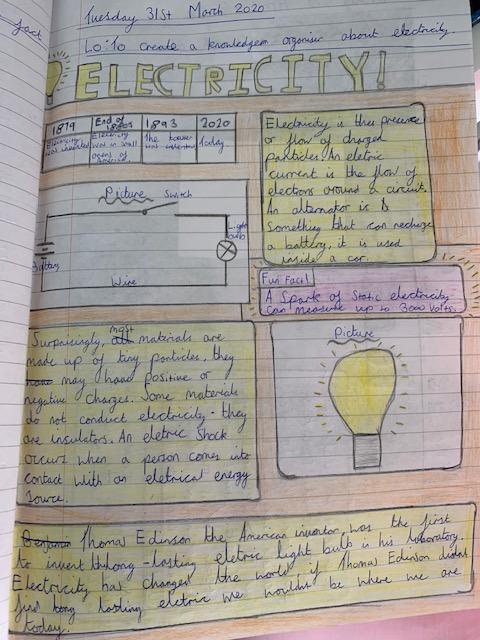 fact
Tuesday 31st March 2020
Lo: To create a knowledgem organiser about electricity.
ELECTRICITY!
1879
Electricity was invented
End of 1800s
Electricity was in small areas of America
1893
The toaster was invented
2020
Today.
Electricity is thes presence
or flow of charged
particles. An eletric
current is the flow of
electrons around a circuit.
An alternator is
Something that can recharge
a battery, it is used
inside a car.
Picture
Switch
Light
bulb
Battery
Wire
Fun Fact!
A Spark of Static electricity
can measure up to 3000 Volts.
Surprisingly, most materials are
made up of tiny particles, they
may have positive or
negative charges. Some materials
do not conduct electricity - they
are insulators. An eletric shock
occurs when a person comes into
contact with an eletrical energy
source.
Picture
Benjamin Thomas Edinson the American inventor, was the first
to invent thlong-lasting eletric light bulb is his laboratory.
Electricity has changed the world if Thomas Edinson didnt
find long lasting eletric we wouldnt be where we are
today.